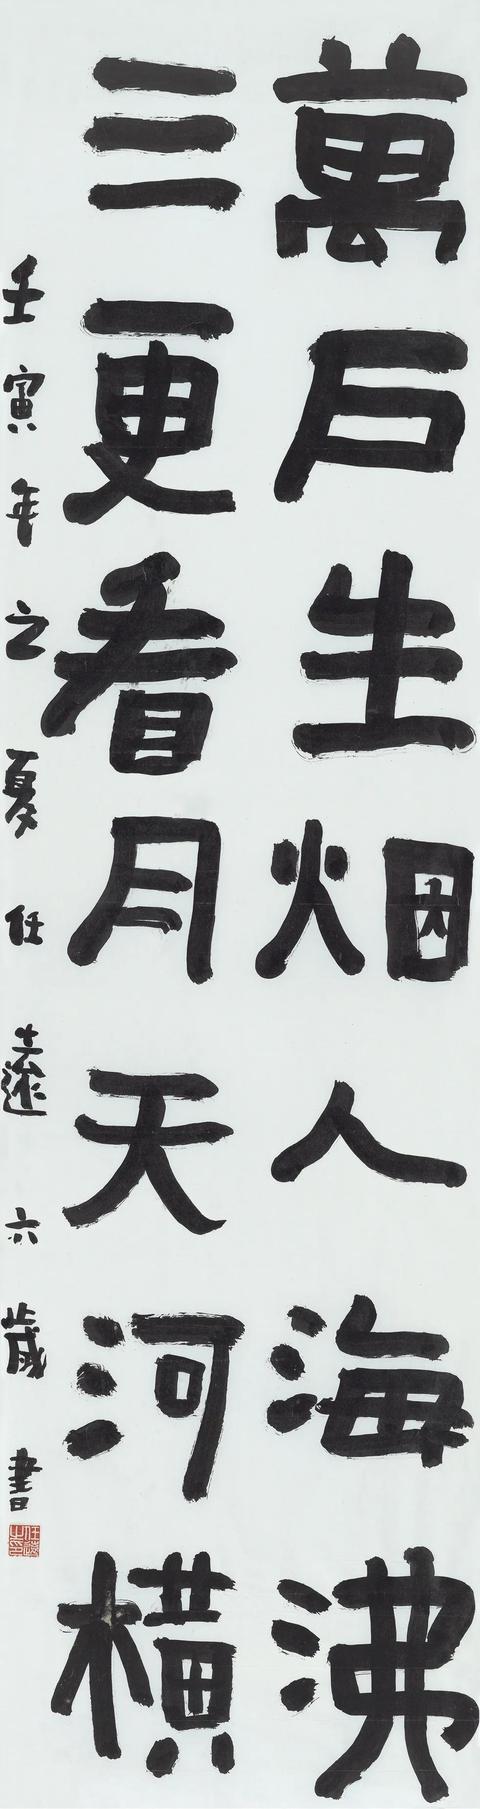 萬戶生烟人海沸
三更看月天河橫
壬寅年之夏任遠六歲書
任遠之印